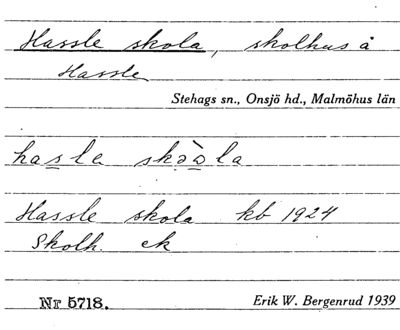 Hassle skola, skolhus å
Hassle
Stehags sn., Onsjö hd., Malmöhus län
hasle skòola
Hassle skola kb 1924
Skolh. ek
Nr 5718.
Erik W. Bergenrud 1939